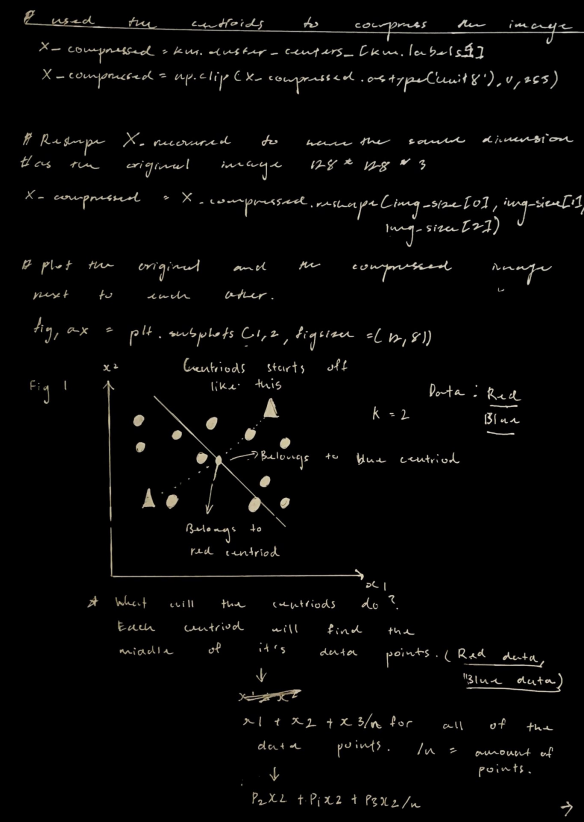 # used the centroids to compress the image
X_compressed = km.cluster_centers_[km.labels_]
X_compressed = np.clip(X_compressed.astype('uint8'), 0, 255)
# Reshape X_recovered to have the same dimension
# as the original image 128 * 128 * 3
X_compressed = X_compressed.reshape(img_size[0], img_size[1],
img_size[2])
# plot the original and the compressed image
next to each other.
fig, ax = plt.subplots(1,2, figsize =(12,8))
Fig 1
x2
Centriods starts off
like this
K = 2
Data : Red
Blue
Belongs to blue centriod
Belongs to
red centriod
x1
* What will the centriods do ?
Each centriod will find the
middle of it's data points. (Red data,
Blue data)
x1 + x2 + x3/n for all of the
data points. /n = amount of
points.
P2x2 + P1x2 + P3x2/n